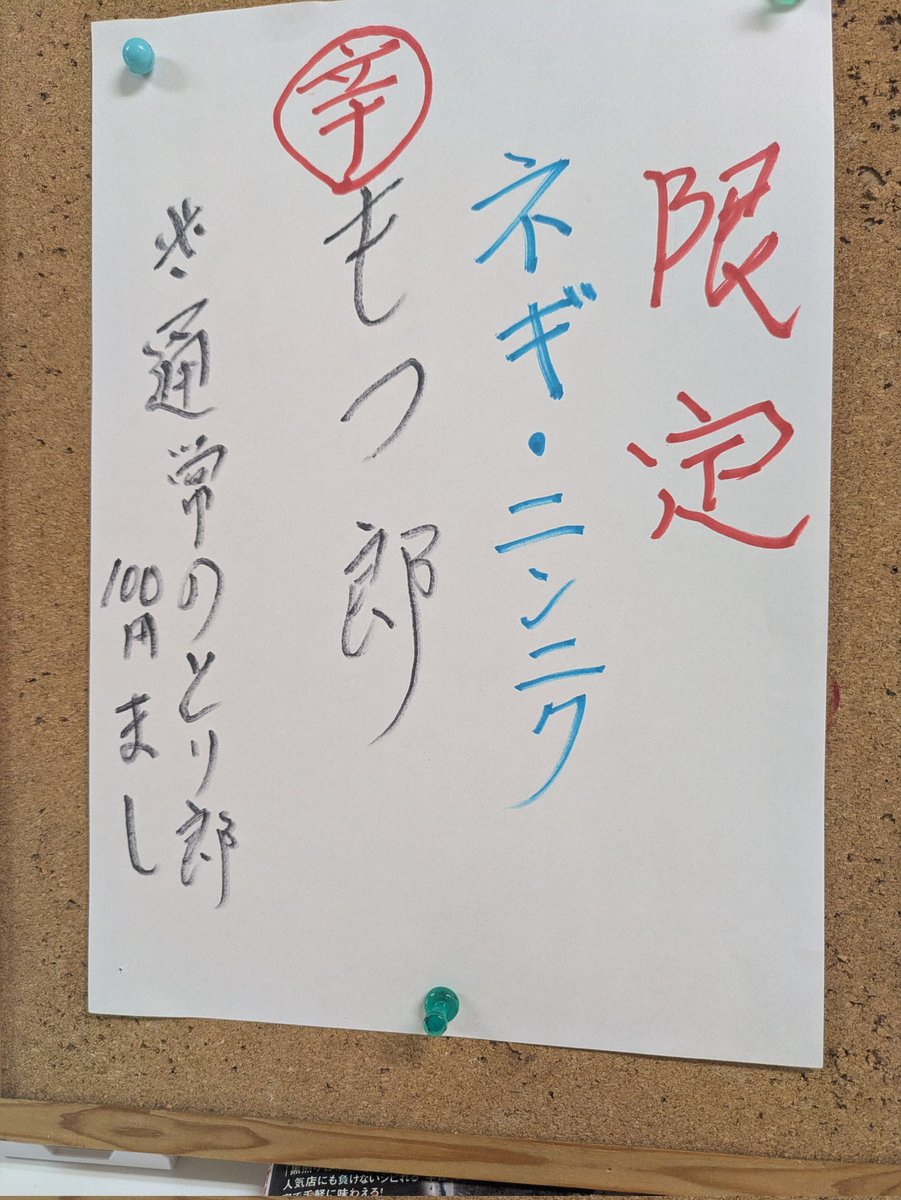 限定
ネギ・ニンニク
辛もつ郎
※通常のとり郎
100円まし
人気店にも負けないシビれる
で手軽に味わえる!